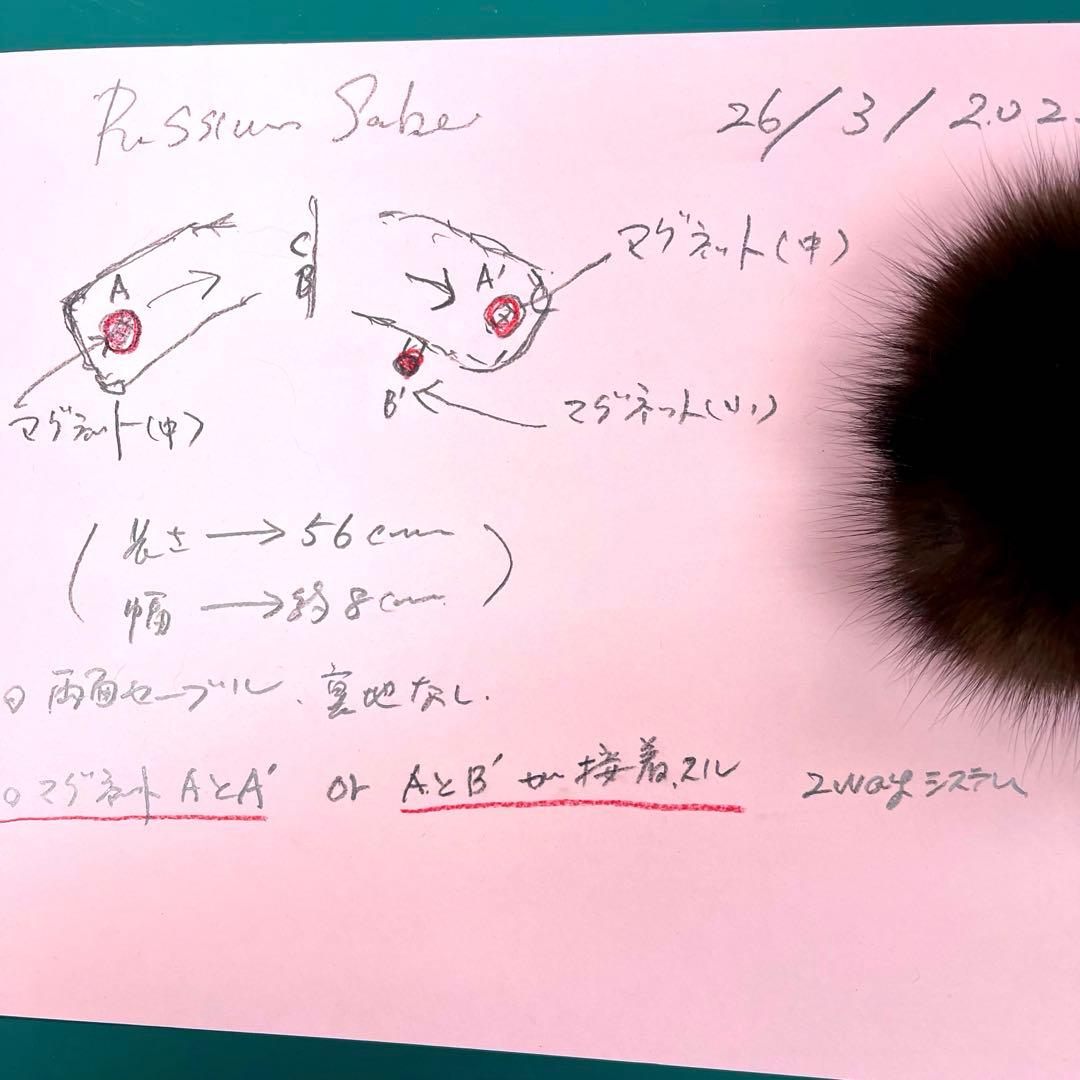 Russian Sable 26/3/202
A
C
B
A'
マグネット(中)
B'
マグネット(小)
マグネット(中)
長さ → 56cm
幅 → 約8cm
○ 両面セーブル、裏地なし.
○ マグネット AとA' or AとB'が接着スル 2wayシステム